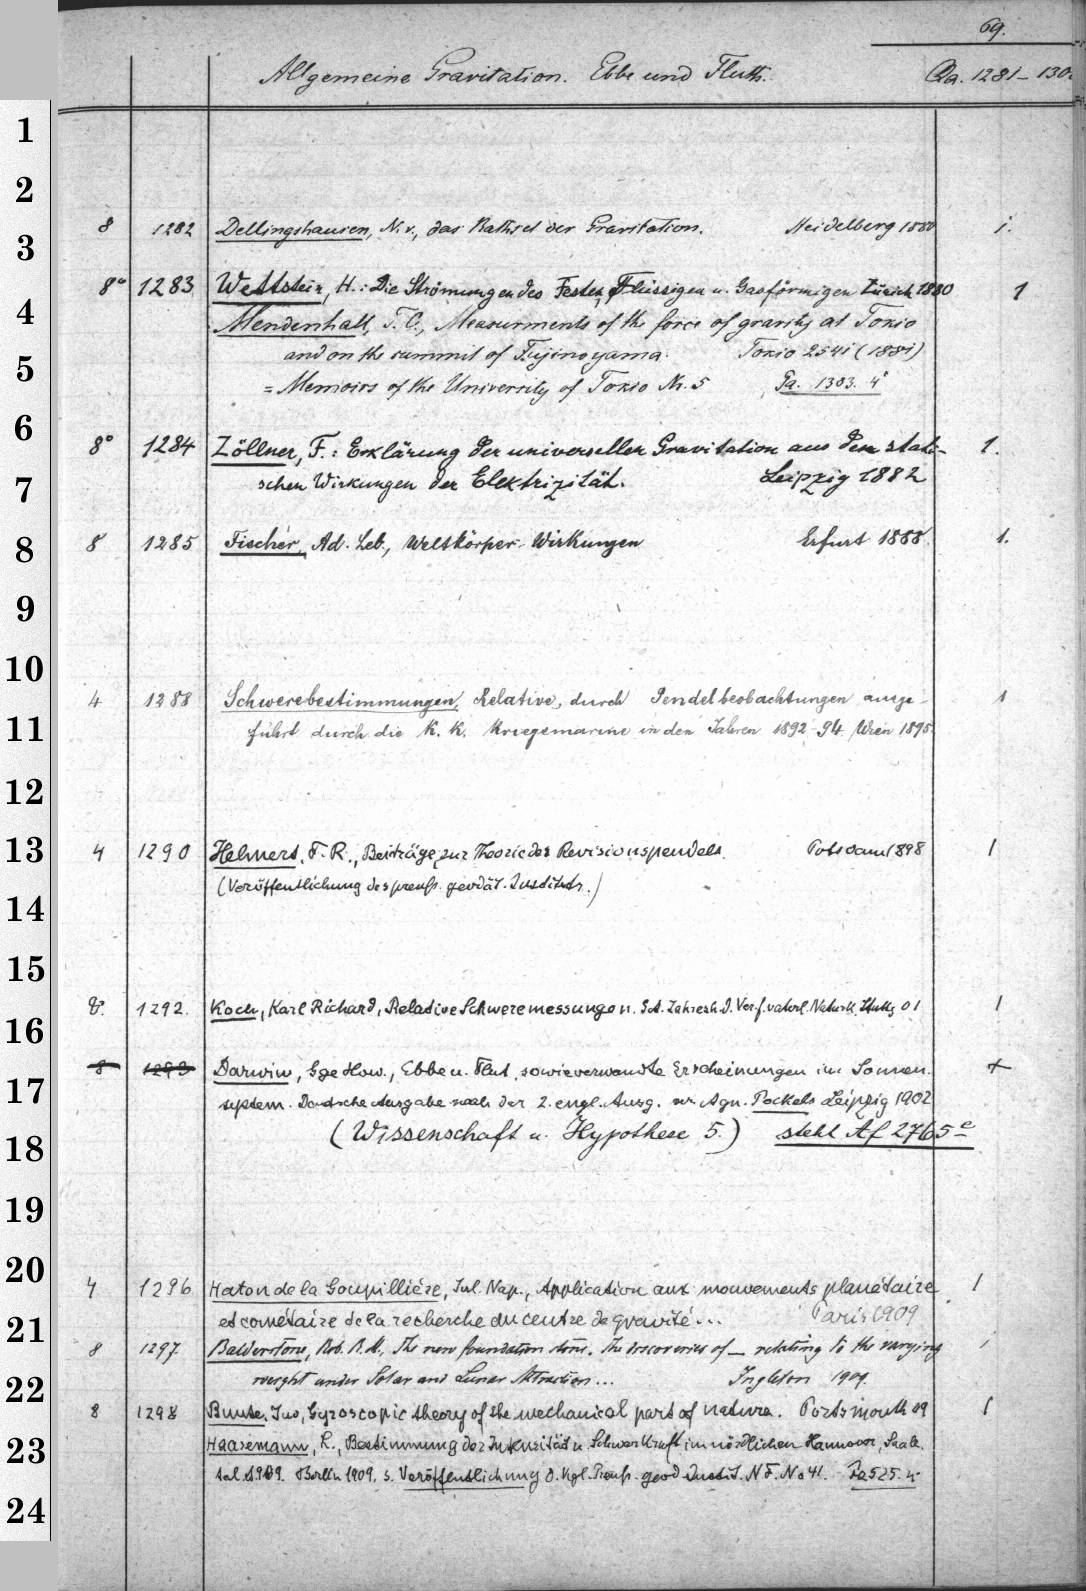 69.
Allgemeine Gravitation. Ebbe und Fluth. Qa. 1281-130
1
2
8 1282 Dellingshausen, N. v., das Rathsel der Gravitation. Heidelberg 1880 1.
3
8° 1283 Wettstein, H.: Die Strömungen des Festen, Flüssigen u. Gasförmigen Zürich 1880 1
4 Mendenhall, T. C., Measurments of the force of gravity at Tokio
and on the summit of Fujinoyama. Tokio 2541 (1881)
5
= Memoirs of the University of Tokio Nr. 5 Pa. 1303. 4°
6
8° 1284 Zöllner, F.: Erklärung der universellen Gravitation aus den stati- 1.
7 schen Wirkungen der Elektrizität. Leipzig 1882
8 8 1285 Fischer, Ad. Leb., Weltkörper-Wirkungen Erfurt 1888. 1.
9
10
4 1288 Schwerebestimmungen, Relative, durch Pendelbeobachtungen ausge- 1
11 führt durch die K. K. Kriegsmarine in den Jahren 1892-94. Wien 1895.
12
13 4 1290 Helmert, F. R., Beiträge zur Theorie des Reversionspendels. Potsdam 1898 1
(Veröffentlichung des preuß. geodät. Instituts.)
14
15
8. 1292. Koch, Karl Richard, Relative Schweremessungen. Jahresh. d. Ver. f. vaterl. Naturk. Stuttg 01 1
16
8 1293 Darwin, Gge How., Ebbe u. Flut, sowie verwandte Erscheinungen im Sonnen-
17 system. Deutsche Ausgabe nach der 2. engl. Ausg. v. Agn. Pockels Leipzig 1902
18 (Wissenschaft u. Hypothese 5.) steht Af 2765 e
19
20
4 1296 Haton de la Goupillière, Jul. Nap., Application aux mouvements planétaire 1
21 et cométaire de la recherche du centre de gravité... Paris 1909
8 1297. Balderstone, Rob. R. M., The new foundation stone. The discoveries of — relating to the varying 1
22 weight under Solar and Lunar Attraction... Ingleton 1909.
8 1298 Buute, Jno, Gyroscopic theory of the mechanical part of nature. Portsmouth 09 1
23 Haasemann, L., Bestimmung der Intensität d. Schwerkraft im nördlichen Hannover, Saale
tal 1909. Berlin 1909, s. Veröffentlichung d. Kgl. Preuß. geod. Instit. N. F. No 41. Pa 525. 4°
24